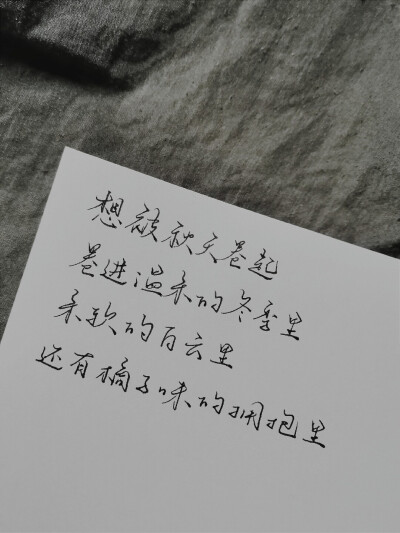 想被秋天卷起
卷进温柔的冬季里
柔软的白云里
还有橘子味的拥抱里